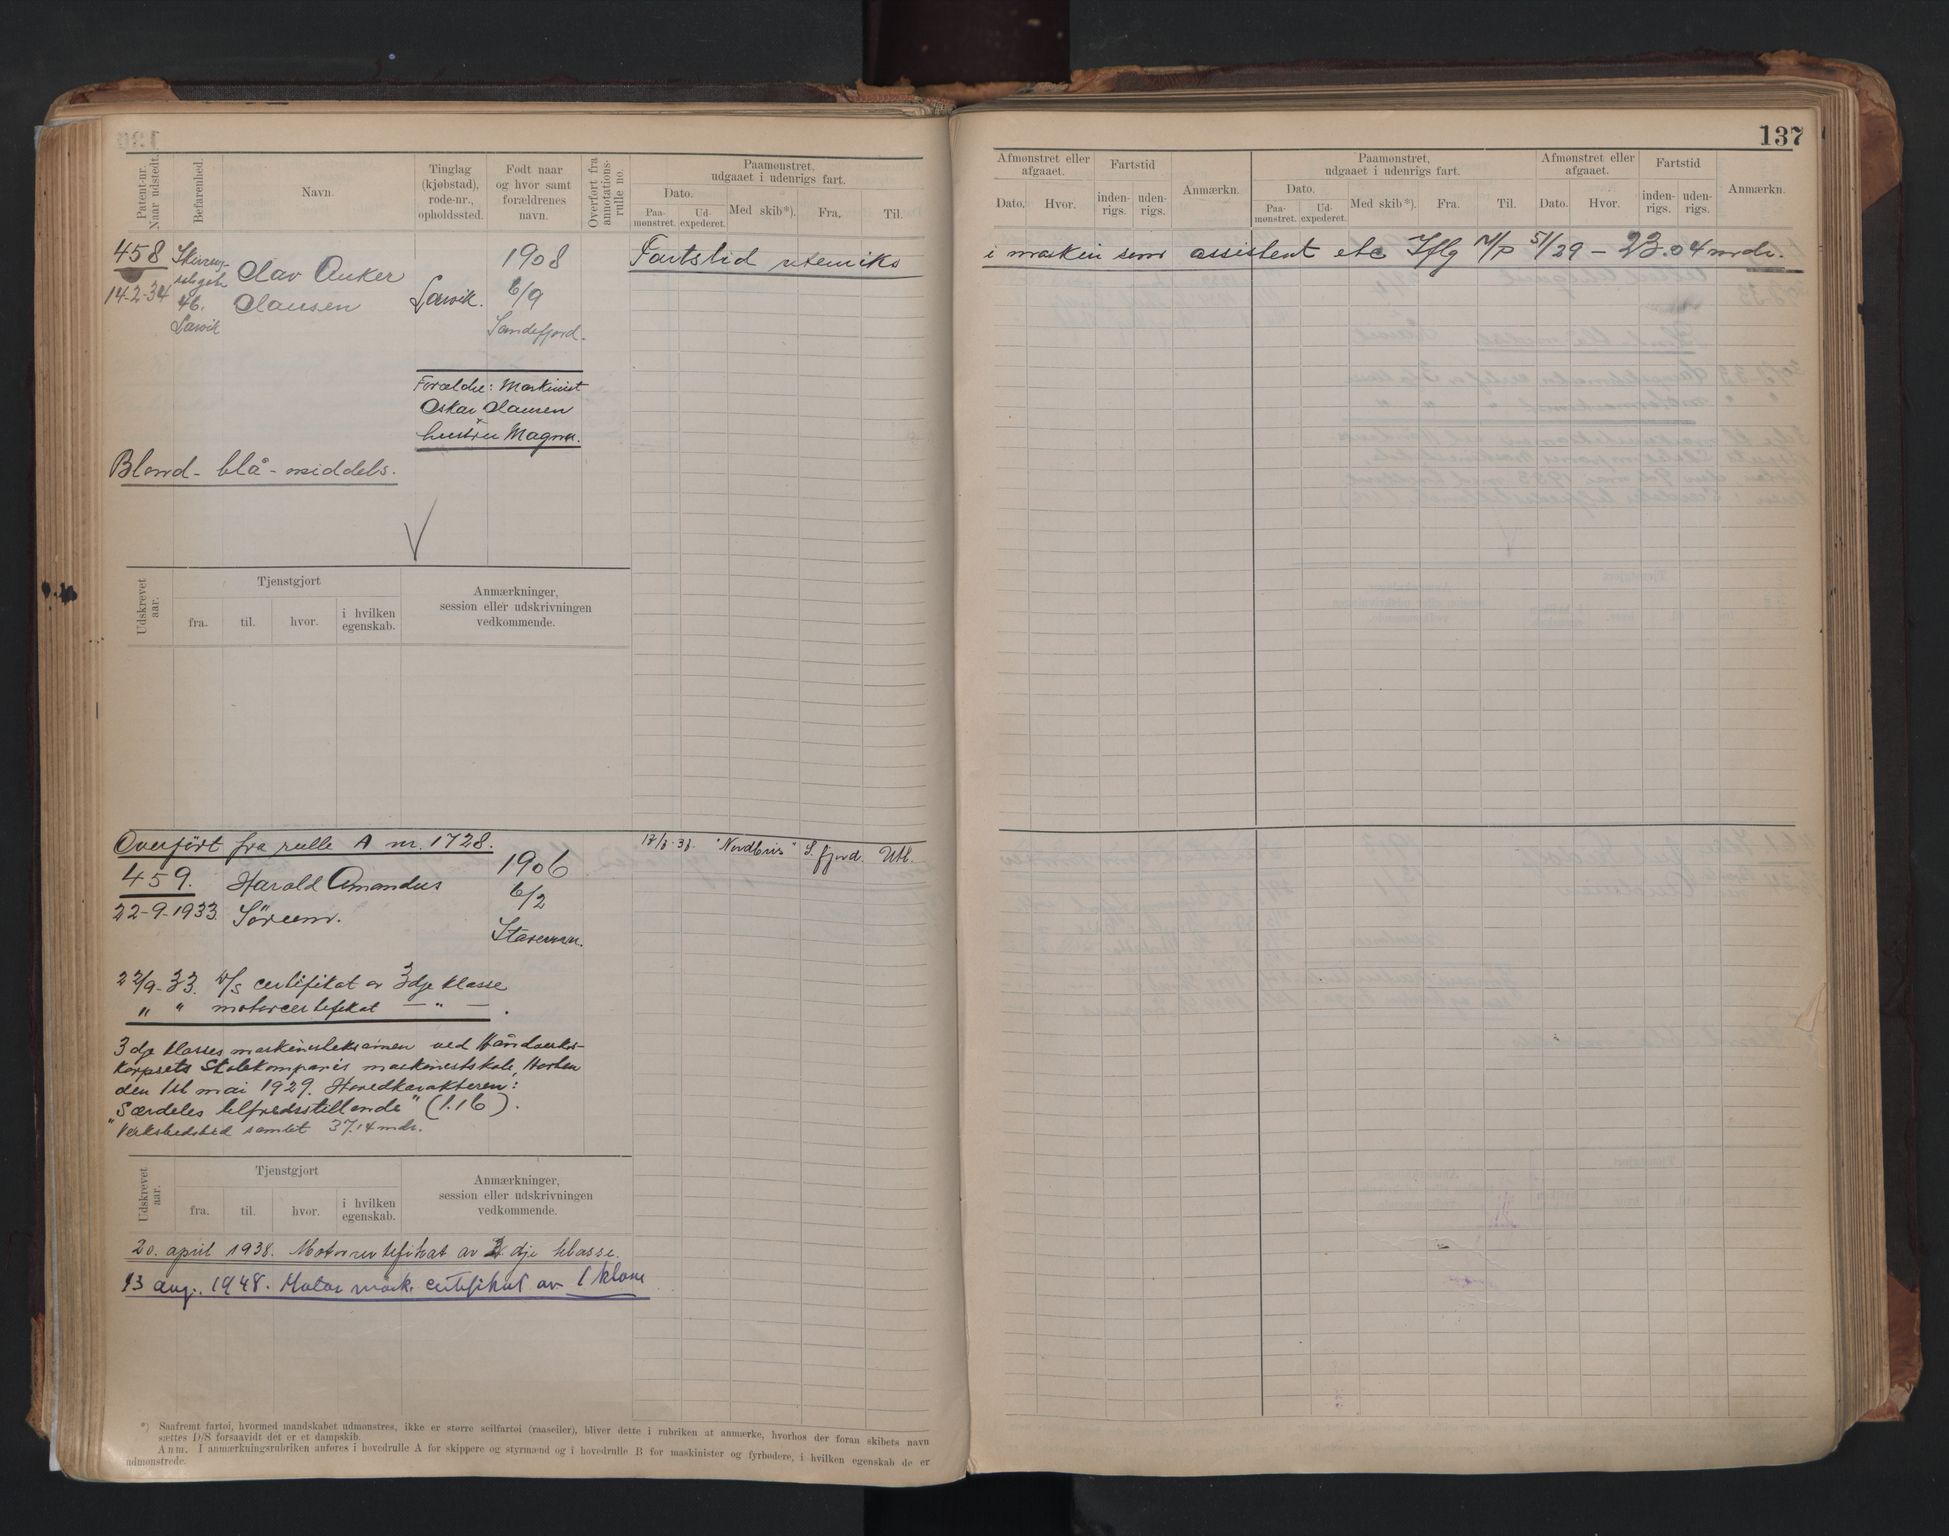 137
Patent-nr. Naar udstedt.
Befarenhed.
Navn.
Tinglag (kjøbstad), rode-nr., opholdssted.
Født naar og hvor samt forældrenes navn.
Overført fra annotations-rulle no.
Paamønstret, udgaaet i udenrigs fart.
Dato.
Paa-mønstret.
Ud-expederet.
Med skib*).
Fra.
Til.
Afmønstret eller afgaaet.
Fartstid
Dato.
Hvor.
inden-rigs.
uden-rigs.
Anmærkn.
Paamønstret, udgaaet i udenrigs fart.
Dato.
Paa-mønstret.
Ud-expederet.
Med skib*).
Fra.
Til.
Afmønstret eller afgaaet.
Fartstid
Dato.
Hvor.
inden-rigs.
uden-rigs.
Anmærkn.
458
14-2-34
46.
Larvik
Olav Anker
Clausen
Larvik.
1908
6/9
Sandefjord.
Fartstid utenriks i maskin som assistent etc Iflg M/P 51/29 – 23.04 mdr.
Forældre: Maskinist
Oskar Clausen
hustru Magna.
Blond - blå - middels.
Udskrevet aar.
Tjenstgjort
fra.
til.
hvor.
i hvilken egenskab.
Anmærkninger, session eller udskrivningen vedkommende.
Overført fra rulle A nr. 1728.
459.
22-9-1933
Harald Amandus
Sörum.
1906
6/2
"Nordbris" S.fjord. Utl.
22/9-33. D/S certifikat av 3dje klasse
" " motorcertifikat — " — .
3dje klasses maskinisteksamen ved Håndverks-
korpsets Skolekompanis maskinistskole, Horten
den 1st mai 1929. Hovedkarakteren:
"Særdeles tilfredsstillende" (1.16).
Verkstedstid samlet 37.14 mdr.
Udskrevet aar.
Tjenstgjort
fra.
til.
hvor.
i hvilken egenskab.
Anmærkninger, session eller udskrivningen vedkommende.
20. april 1938. Motorcertifikat av 2 dje klasse.
13 aug. 1948. Motor mask. certifikat av 1 klasse
*) Saafremt fartøi, hvormed mandskabet udmønstres, ikke er større seilfartøi (raaseiler), bliver dette i rubriken at anmerke, hvorhos der foran skibets navn
sættes D/S forsaavidt det er et dampskib.
Anm. I anmærkningsrubriken anføres i hovedrulle A for skippere og styrmænd og i hovedrulle B for maskinister og fyrbødere, i hvilken egenskab de er
udmønstrede.